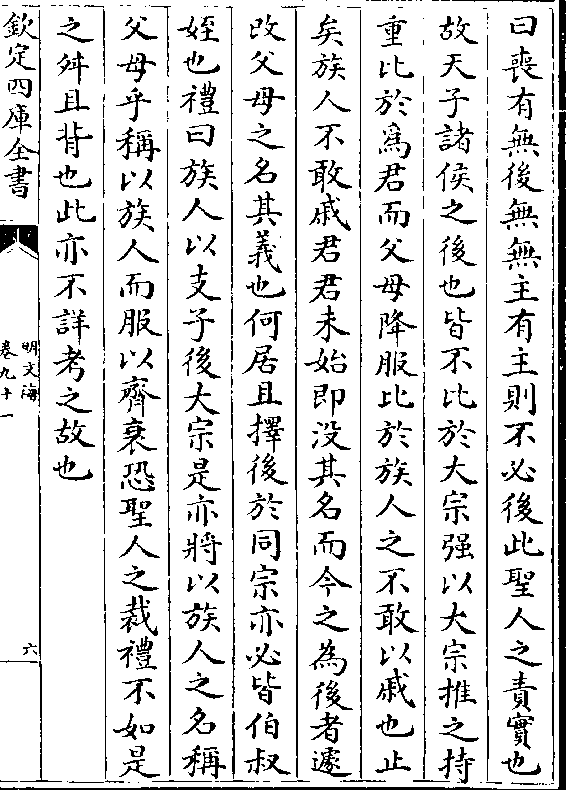 曰喪有無後無無主有主則不必後此聖人之責實也
故天子諸侯之後也皆不比於大宗强以大宗推之持
重比於爲君而父母降服比於族人之不敢以戚也止
矣族人不敢戚君君未始即没其名而今之為後者遽
改父母之名其義也何居且擇後於同宗亦必皆伯叔
姪也禮曰族人以支子後大宗是亦將以族人之名稱
父母乎稱以族人而服以齊衰恐聖人之裁禮不如是
之舛且背也此亦不詳考之故也
欽定四庫全書
明文海
卷九十一
六